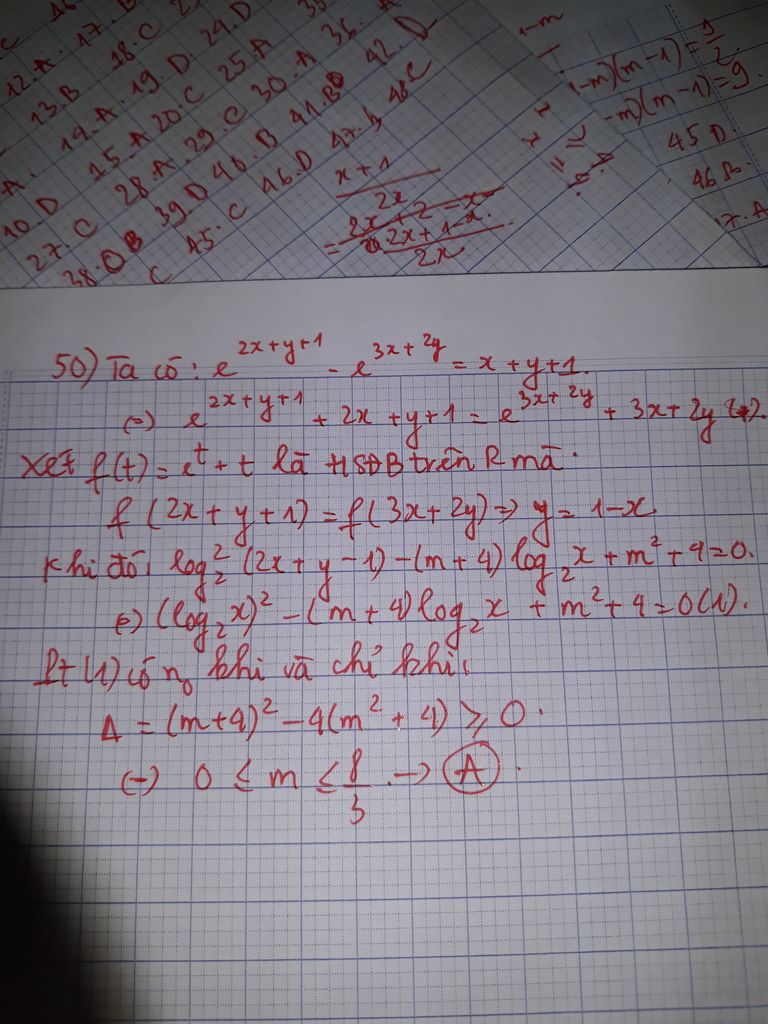 12.A. 17.B
13.B 18.C
14.A. 19.D 24.D
A. 15.A 20.C 25.A
10.D 28.A. 29.C 30.A 36.A
27.C 39.D 40.B 41.B 42.D
38. B 45.C 46.D 47. 48C
C
x+1
2x
= 2x+2-x
2x+1-x
2x
1-m
1-m)(m-1) = 9/2.
-m)(m-1) = 9.
45D.
46B.
17.A
50) Ta có: e^{2x+y+1} - e^{3x+2y} = x+y+1.
(=) e^{2x+y+1} + 2x+y+1 = e^{3x+2y} + 3x+2y
Xét f(t) = e^t + t là HSĐB trên R mà.
f(2x+y+1) = f(3x+2y) => y = 1-x
Khi đó: log₂²(2x+y-1) - (m+4) log₂x + m² + 4 = 0.
(=) (log₂x)² - (m+4) log₂x + m² + 4 = 0 (1).
Pt (1) có n₀ khi và chỉ khi:
Δ = (m+4)² - 4(m² + 4) ≥ 0.
(=) 0 ≤ m ≤ 8/3 → A.